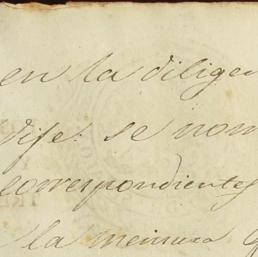 en la dilige
dife: se nom
correspondientes
la mensura q